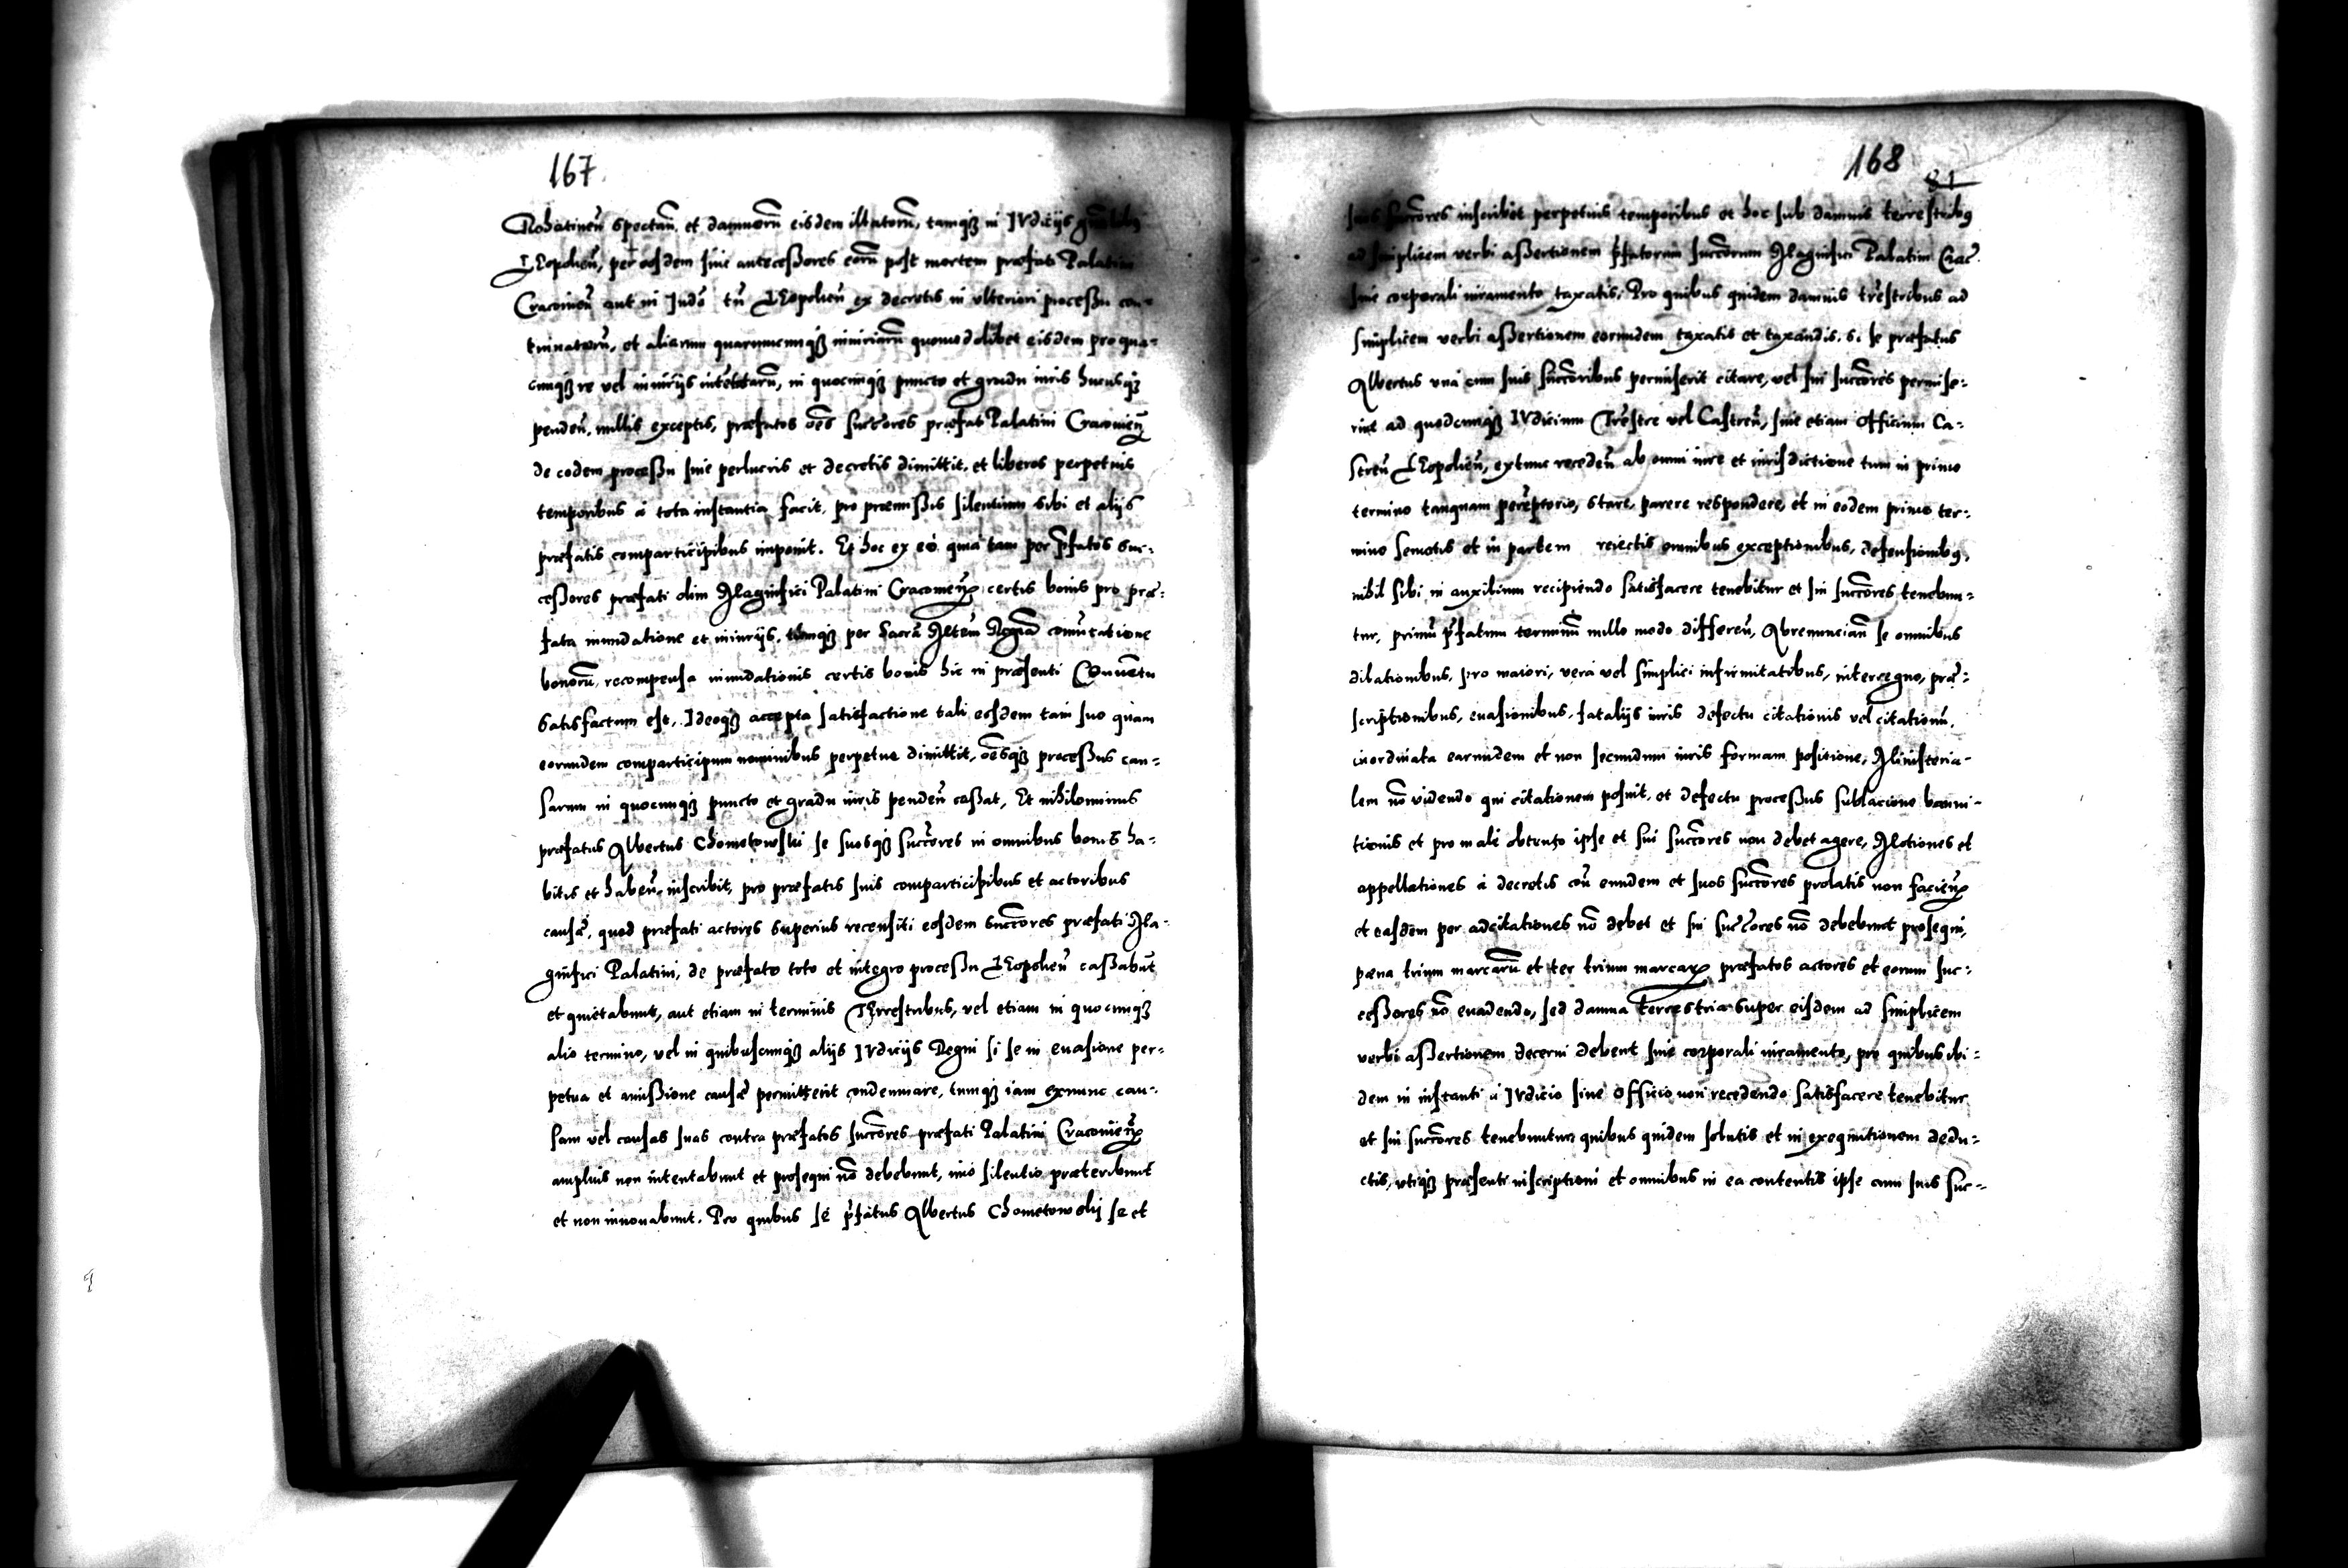 167
Rohatineñ spectañ. et damnorũ eisdem illatorũ, tamqȝ in IVdicijs
LEopolieñ, per eosdem siue antecessores eorũ post mortem præfati Palatini
Cracouieñ aut in Iudõ tñ LEopolieñ ex decretis in vlteriori processu con=
tinuatorũ, et aliarum quarumcunqȝ iniuriarũ quomodolibet eisdem pro qua=
cunqȝ re vel iniurijs intẽtatarũ, in quocunqȝ puncto et gradu iuris hucusqȝ
pendeñ, nullis exceptis, præfatos oẽs succ̃ores præfati Palatini Cracouieñ
de eodem processu siue perlucris et decretis dimittit, et liberos perpetuis
temporibus á tota instantia facit, pro præmissis silentium sibi et alijs
præfatis comparticipibus imponit. Et hoc ex eó quia tam per p̃fatos suc=
cessores præfati olim Magnifici Palatini Cracouieñ certis bonis pro præ=
fata inundatione et iniurijs, tumqȝ per Sacrã Mtem Regiã comutatione
bonorũ, recompensa inundationis certis bonis hic in præsenti COnuẽtu
Satisfactum est, Ideoqȝ accepta satisfactione tali eosdem tam suo quam
eorundem comparticipum nominibus perpetue dimittit, oẽsqȝ processus cau=
sarum in quocunqȝ puncto et gradu iuris pendeñ cassat, Et nihilominus
præfatus Albertus Chometowski se suosqȝ succ̃ores in omnibus bonis ha=
bitis et habeñ, inscribit, pro præfatis suis comparticipibus et actoribus
causæ, quod præfati actores superius recensiti eosdem succ̃ores præfati Ma=
gnifici Palatini, de præfato toto et integro processu LEopolieñ cassabũt
et quietabunt, aut etiam in terminis TErrestribus, vel etiam in quocunqȝ
alio termino, vel in quibuscunqȝ alijs IVdicijs Regni si se in euasione per=
petua et amissione causæ permitterit condemnare, tumqȝ iam exnunc cau=
sam vel causas suas contra præfatos succ̃ores præfati Palatini Cracouieñ
amplius non intentabunt et prosequi nõ debebunt, imó silentio præteribunt
et non innouabunt. Pro quibus se p̃fatus Albertus Chometowskij se et
168
81
suos succ̃ores inscribit perpetuis temporibus et hoc sub damnis terrestribꝰ
ad simplicem verbi assertionem p̃fatorum succ̃orum Magnifici Palatini Crac̃.
siue corporali iuramento taxatis. Pro quibus quidem damnis tr̃estribus ad
simplicem verbi assertionem eorundem taxatis et taxandis, si se præfatus
Albertus vná cum suis succ̃oribus permiserit citare, vel sui succ̃ores permise=
rint ad quodcunqȝ IVdicium Tr̃estre vel Castreñ, siue etiam Officium Ca=
streñ LEopolieñ, extunc recedeñ ab omni iure et iurisdictione tum in primo
termino tanquam per̃eptorio, stare, parere respondere, et in eodem primo ter=
mino semotis et in partem reiectis omnibus exceptionibus, defensionibꝰ,
nihil sibi in auxilium recipiendo satisfacere tenebitur et sui succ̃ores tenebun=
tur, primũ p̃fatum terminũ nullo modo differeñ, Abrenunciañ se omnibus
dilationibus, pro maiori, vera vel simplici infirmitatibus, interregno, præ=
scriptionibus, euasionibus, fatalijs iuris defectu citationis vel citationũ,
inordinata earundem et non secundum iuris formam positione, Ministeria=
lem nõ videndo qui citationem posuit, et defectu processus sublacione banni=
tionis et pro malé obtento ipse et sui succ̃ores non debet agere, Motiones et
appellationes á decretis coñ eundem et suos succ̃ores prolatis non facieñ
et easdem per adcitationes nõ debet et sui succ̃ores nõ debebunt prosequi,
pæna trium marcarũ et ter trium marcarꝝ præfatos actores et eorum suc=
cessores nõ euadendo, sed damna terrestria super eisdem ad simplicem
verbi assertionem decerni debent siue corporali iuramento, pro quibus ibi=
dem in instanti á IVdicio siue Officio non recedendo satisfacere tenebitur
et sui succ̃ores tenebuntur quibus quidem solutis et in exequutionem dedu=
ctis, vtiqȝ præsenti inscriptioni et omnibus in ea contentis ipse cum suis suc=